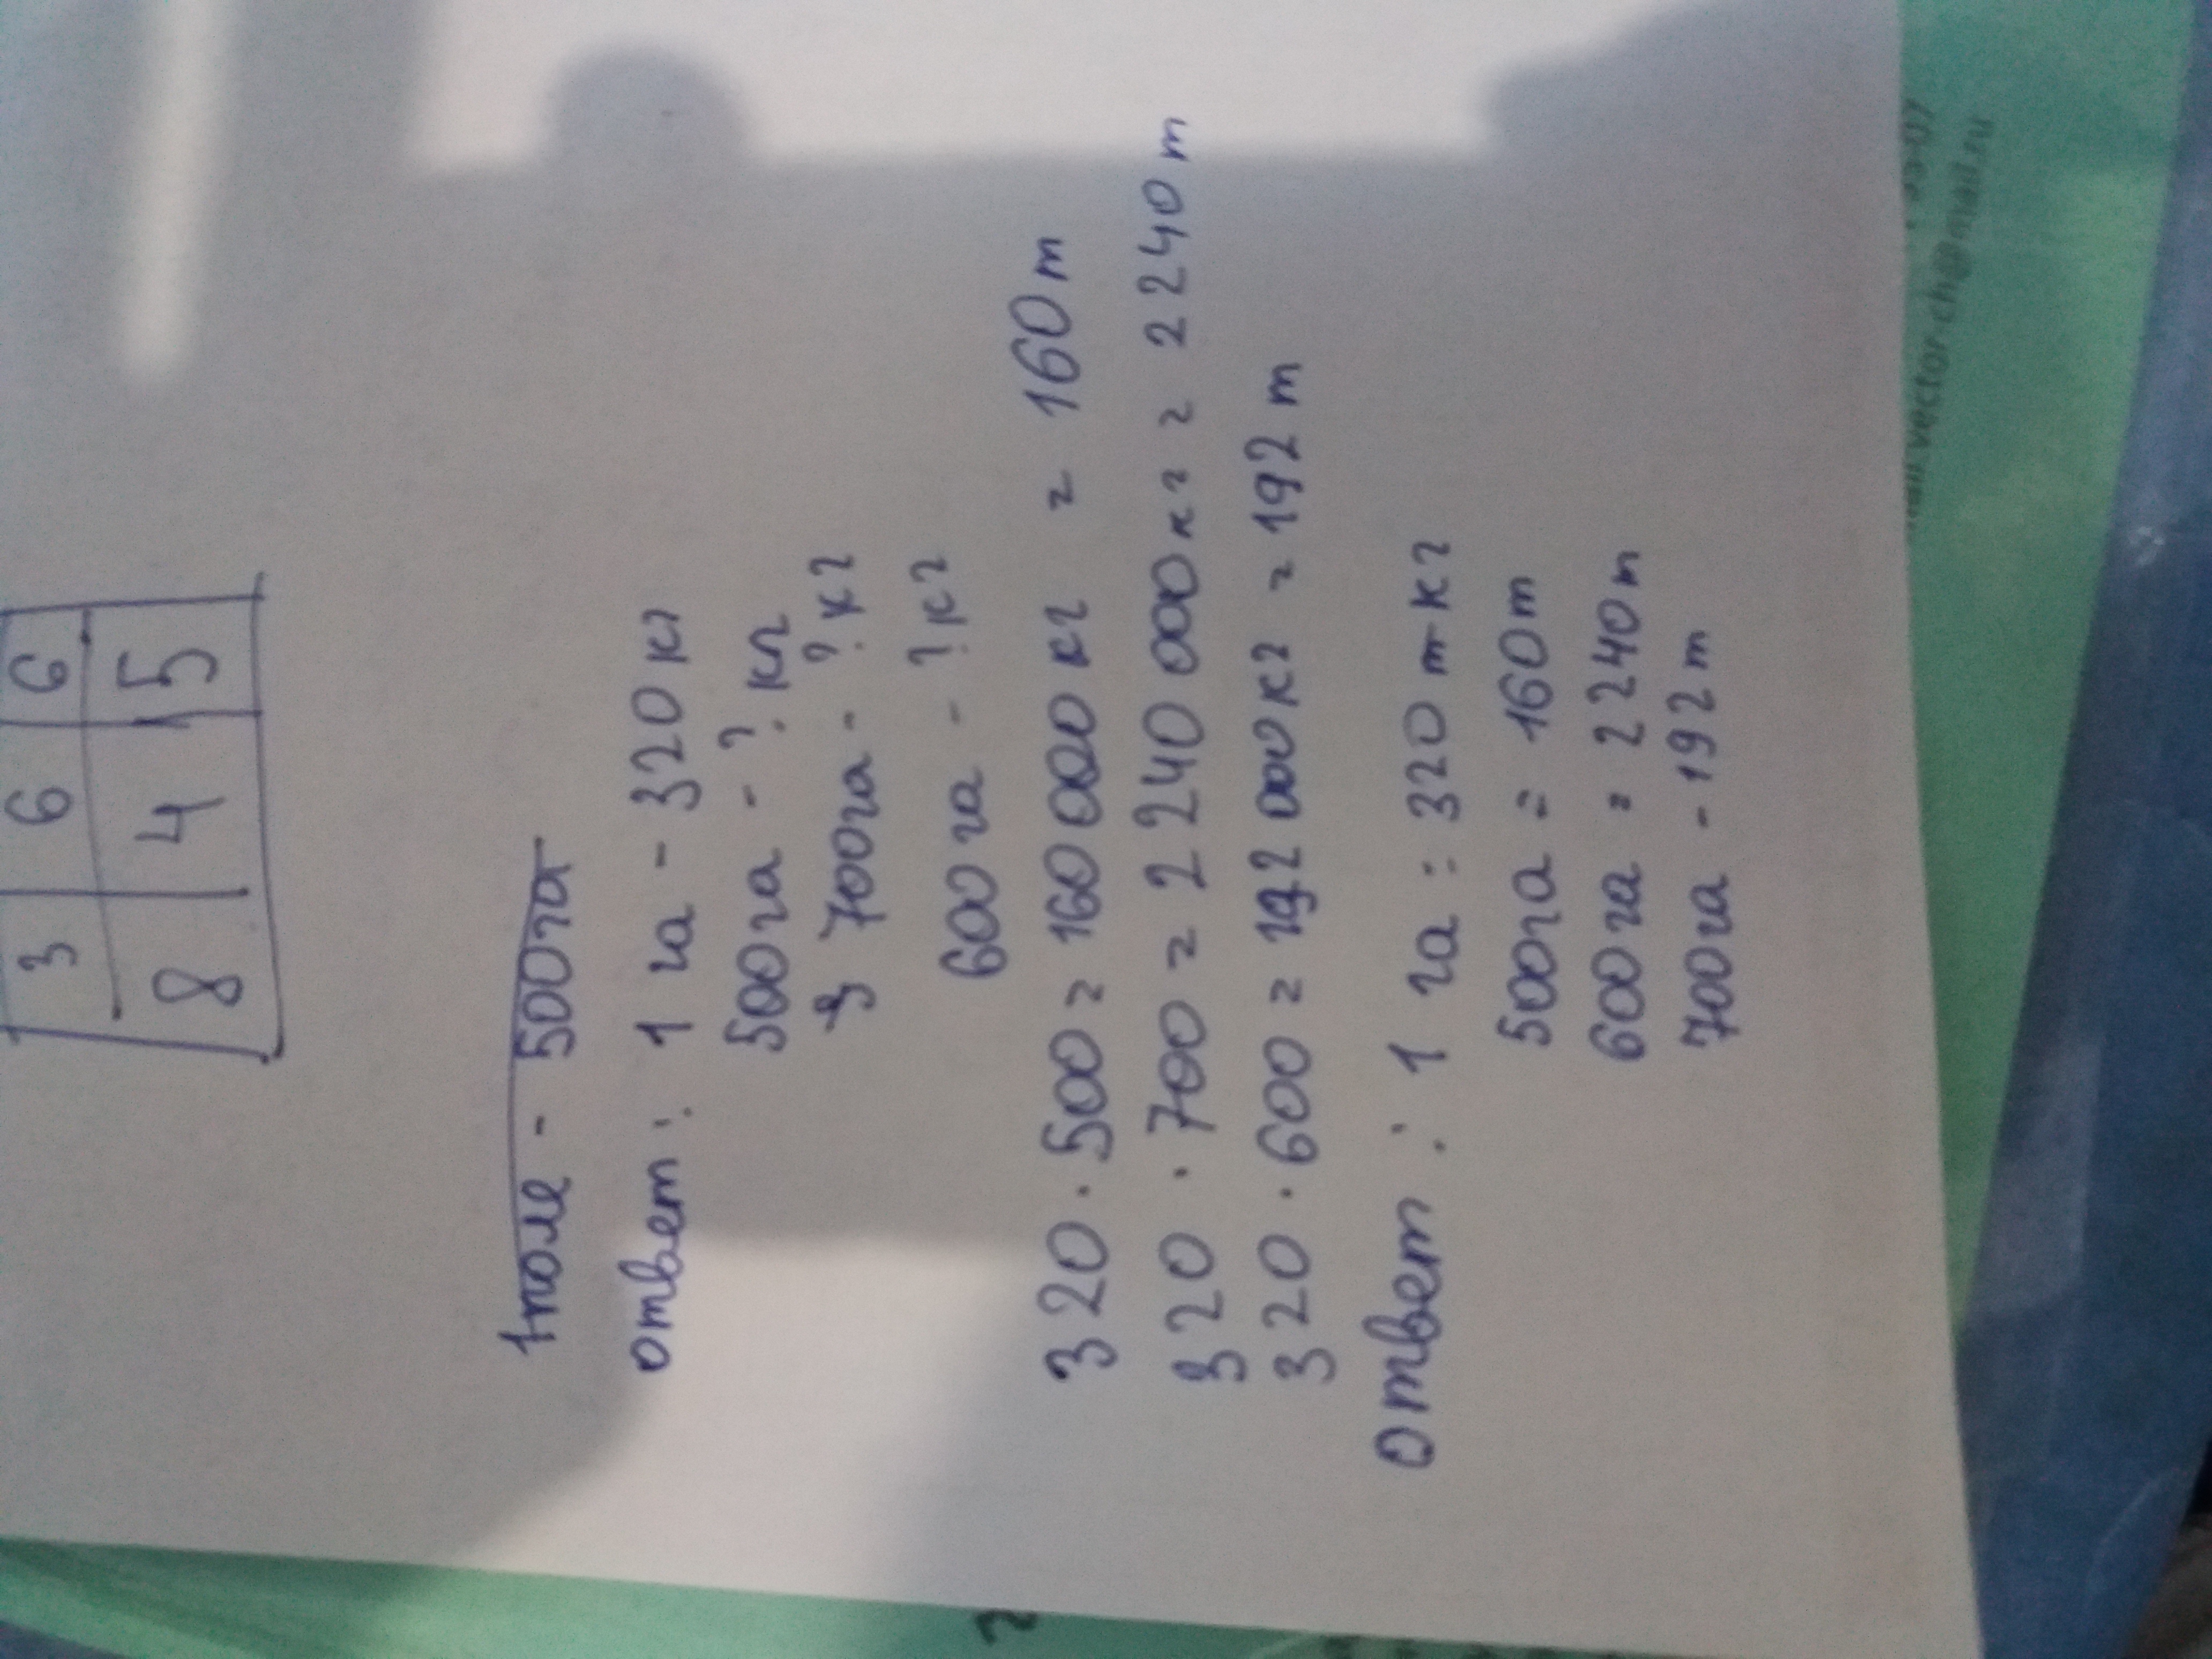 3 6 6
8 4 5
1 поле - 500га
ответ: 1 га - 320 кг
500га - ? кг
700га - ? кг
600 га - ? кг
320 · 500 = 160 000 кг = 160 т
320 · 700 = 2 240 000 кг = 2 240 т
320 · 600 = 192 000 кг = 192 т
Ответ: 1 га = 320 т кг
500га = 160 т
600 га = 2 240 т
700га - 192 т
vector-ch@mail.ru
2